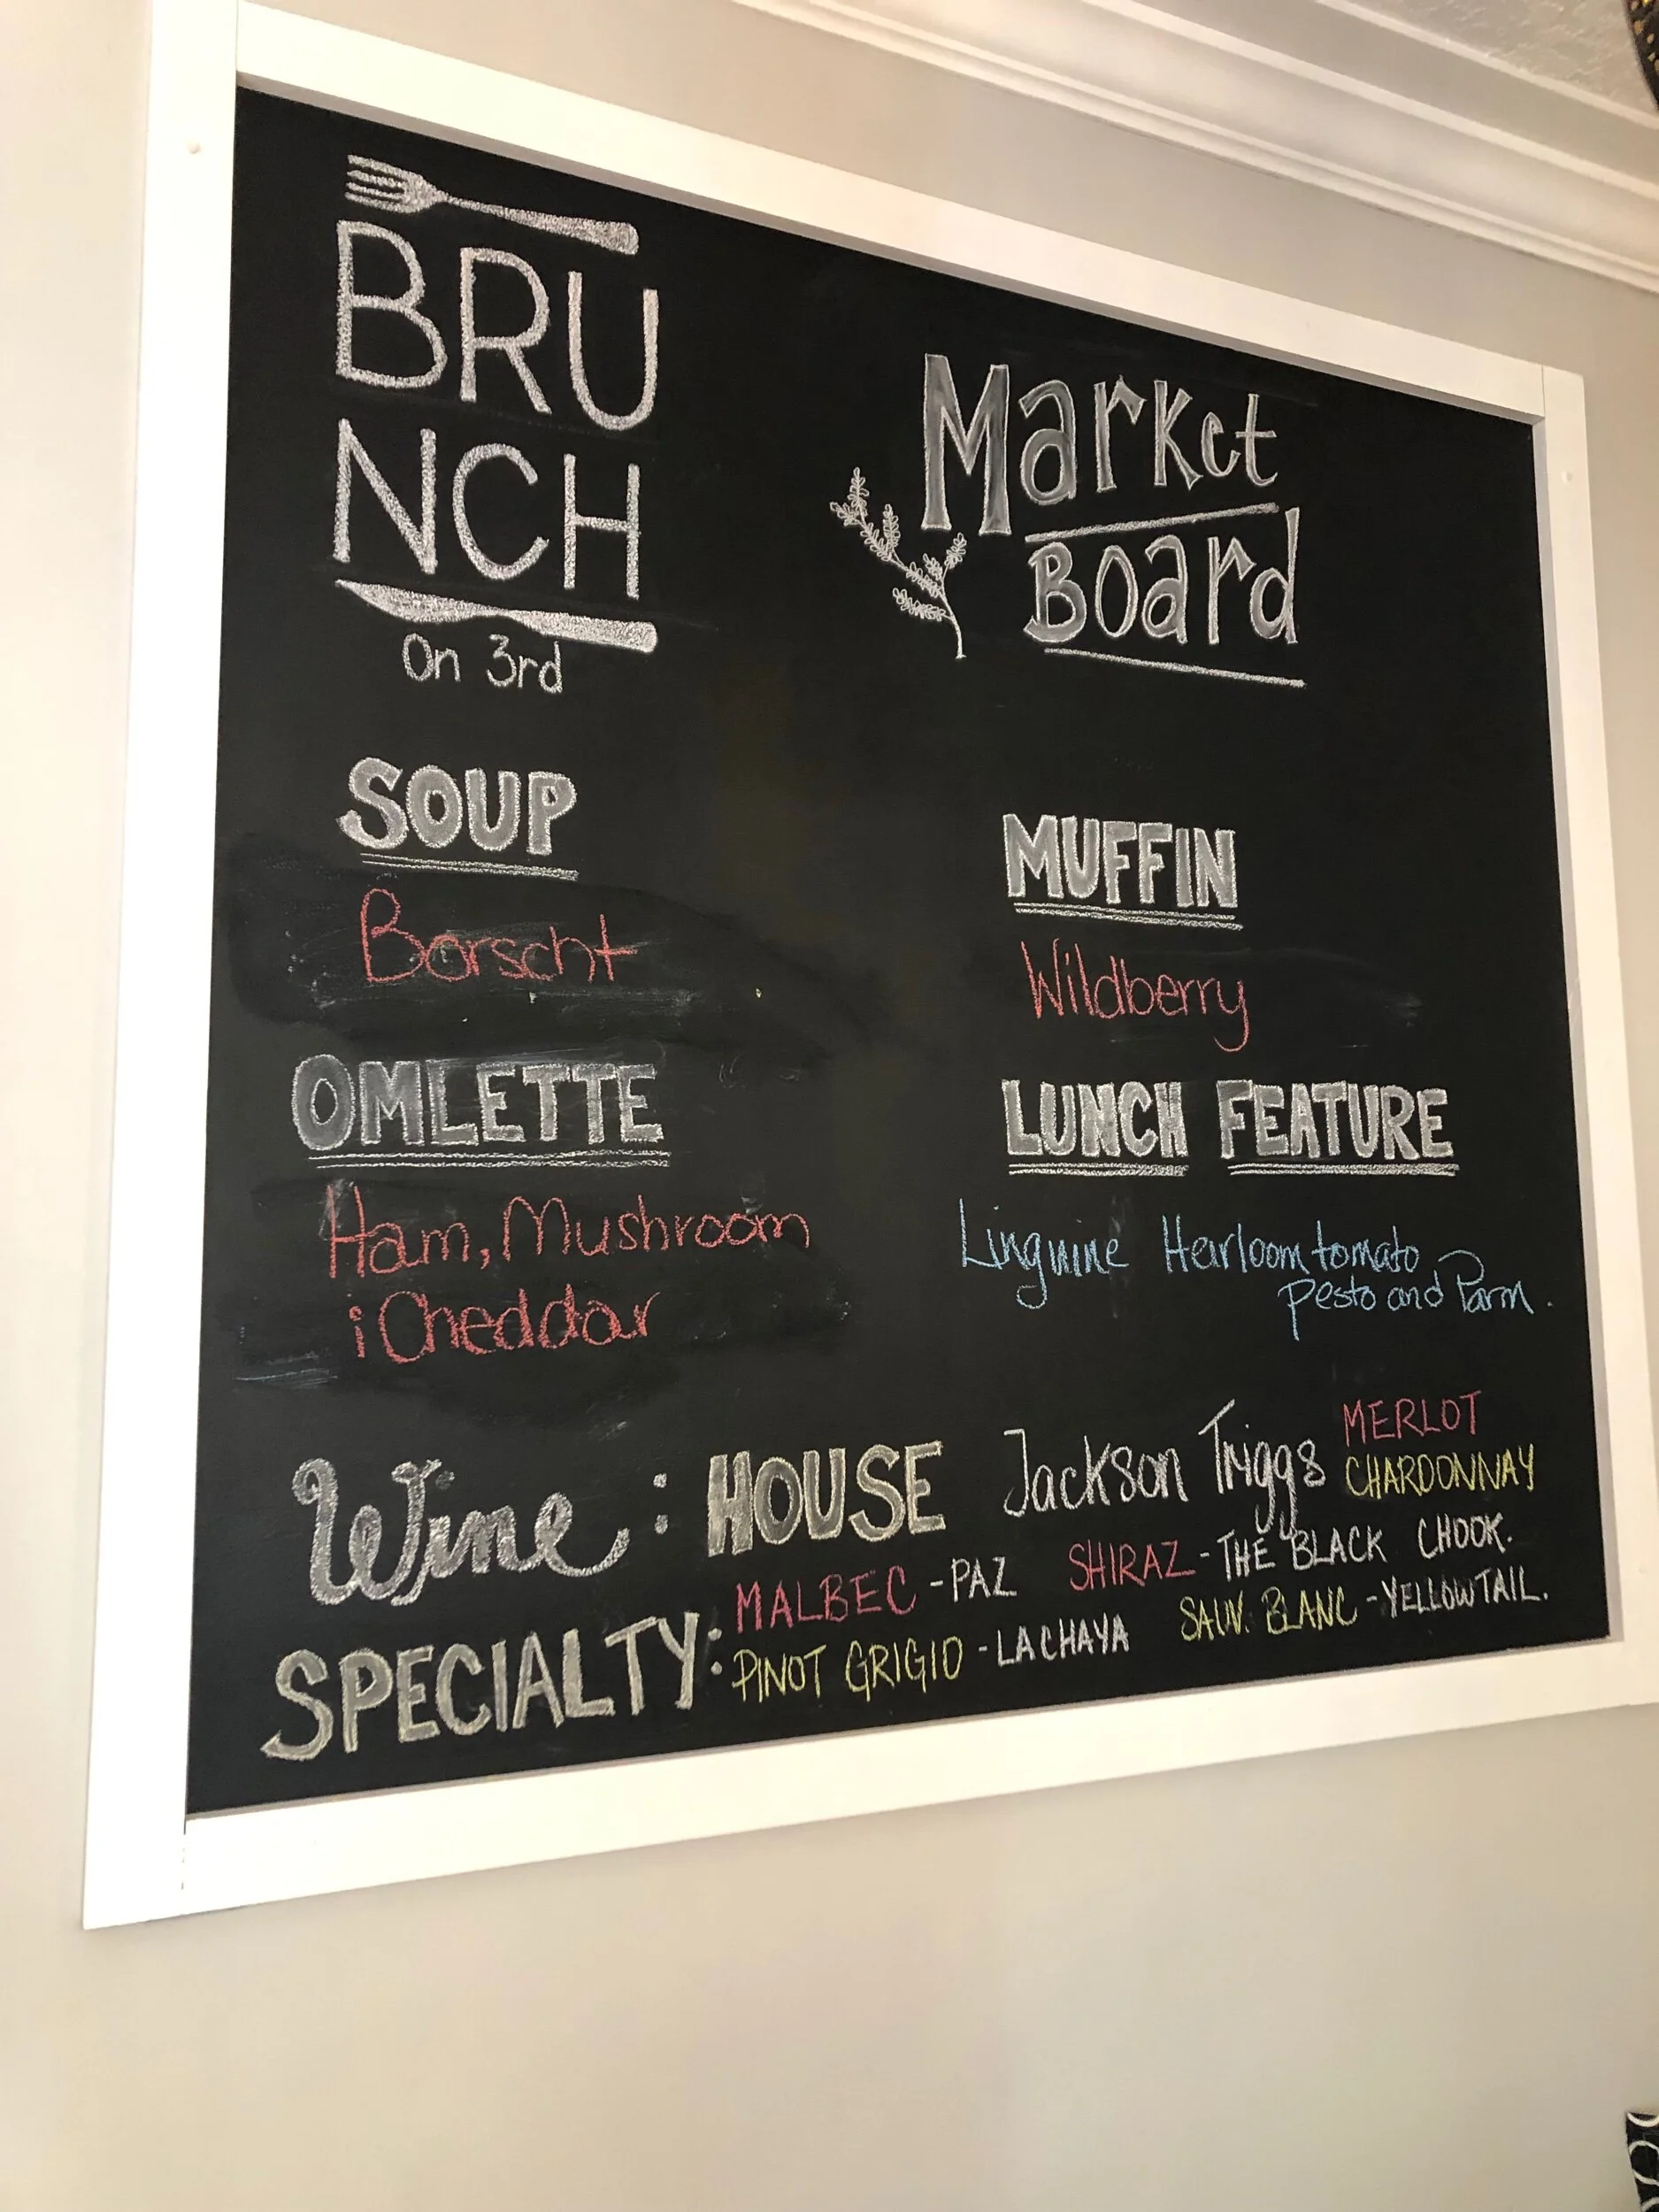 BRU
NCH
On 3rd
Market
Board
SOUP
Borscht
MUFFIN
Wildberry
OMLETTE
Ham, Mushroom
i Cheddar
LUNCH FEATURE
Linguine Heirloom tomato
pesto and Parm.
Wine: HOUSE Jackson Triggs MERLOT
CHARDONNAY
SPECIALTY: MALBEC - PAZ SHIRAZ - THE BLACK CHOOK.
PINOT GRIGIO - LA CHAYA SAUV. BLANC - YELLOWTAIL.